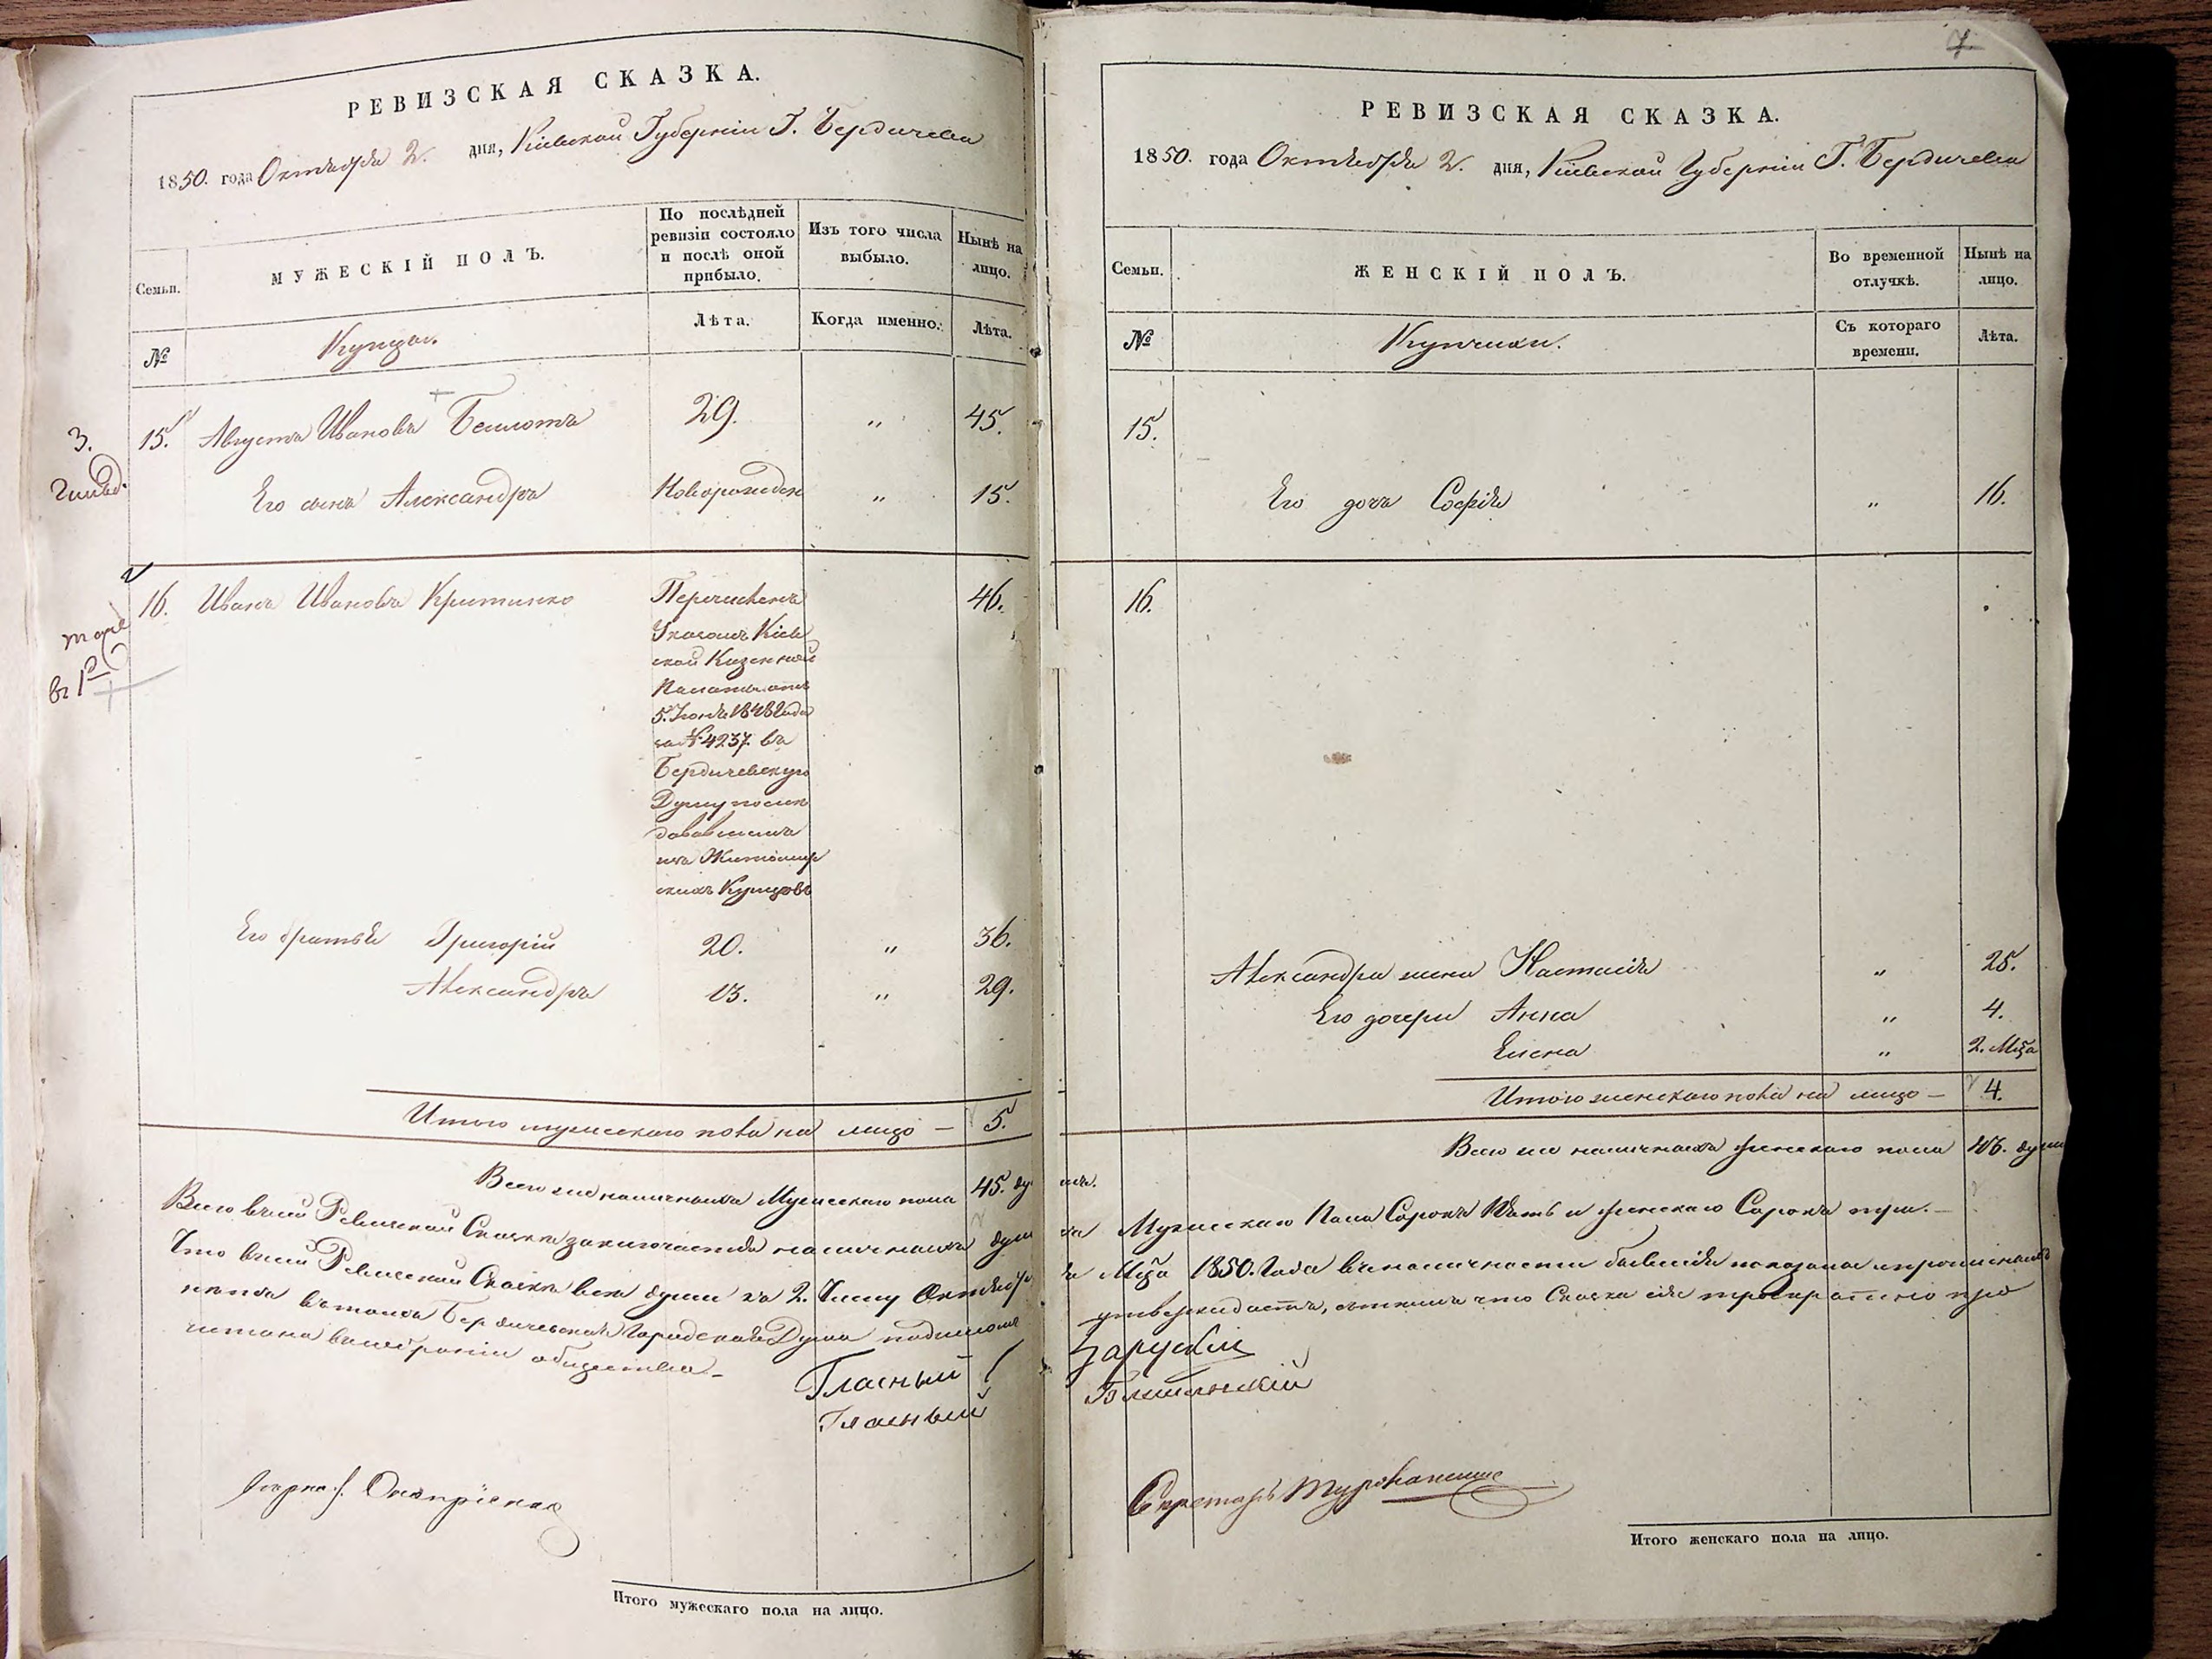 РЕВИЗСКАЯ СКАЗКА.
1850. года Октября 2. дня, Кіевской Губерніи Г. Бердичева
Семьи.
МУЖЕСКІЙ ПОЛЪ.
По послѣдней ревизіи состояло и послѣ оной прибыло.
Изъ того числа выбыло.
Нынѣ на лицо.
№
Купцы.
Лѣта.
Когда именно.
Лѣта.
3. Гильд.
15. Августъ Ивановъ 29. " 45.
Его сынъ Александръ Новорожден " 15.
16. Иванъ Ивановъ 46.
тоже
Перечисленъ
Указомъ Кіев
ской Казенной
Палаты отъ
5. Іюня 1848 года
за № 4237. въ
Бердичевскую
Думу послѣ
довавшимъ
изъ Житомир
скихъ Купцовъ
Его братья Григорій 20. " 36.
Александръ 13. " 29.
Итого мужескаго пола на лицо — 5.
Всего же наличныхъ Мужескаго пола 45. ду
Всего въ сей Ревизской Сказкѣ заключается наличныхъ душ
Что въ сей Ревизской Сказкѣ всѣ души къ 2. Числу Октябр
въ томъ Бердичевская Городская Дума
читана въ собраніи общества.
Гласный
Гласный
Итого мужескаго пола на лицо.
7.
РЕВИЗСКАЯ СКАЗКА.
1850. года Октября 2. дня, Кіевской Губерніи Г. Бердичева
Семьи.
ЖЕНСКІЙ ПОЛЪ.
Во временной отлучкѣ.
Нынѣ на лицо.
№
Купчихи.
Съ котораго времени.
Лѣта.
15.
Его дочь Софія " 16.
16.
Александра жена Настасія " 25.
Его дочери Анна " 4.
Елена " 2. Мца
Итого женскаго пола на лицо — 4.
Всего же наличныхъ женскаго пола душ
Мужескаго Пола Сорокъ Пять и женскаго Сорокъ
Мца 1850. Года въ наличности бывшія показаны
утверждаетъ, съ тѣмъ что Сказка сія троекратно про
Секретарь
Итого женскаго пола на лицо.